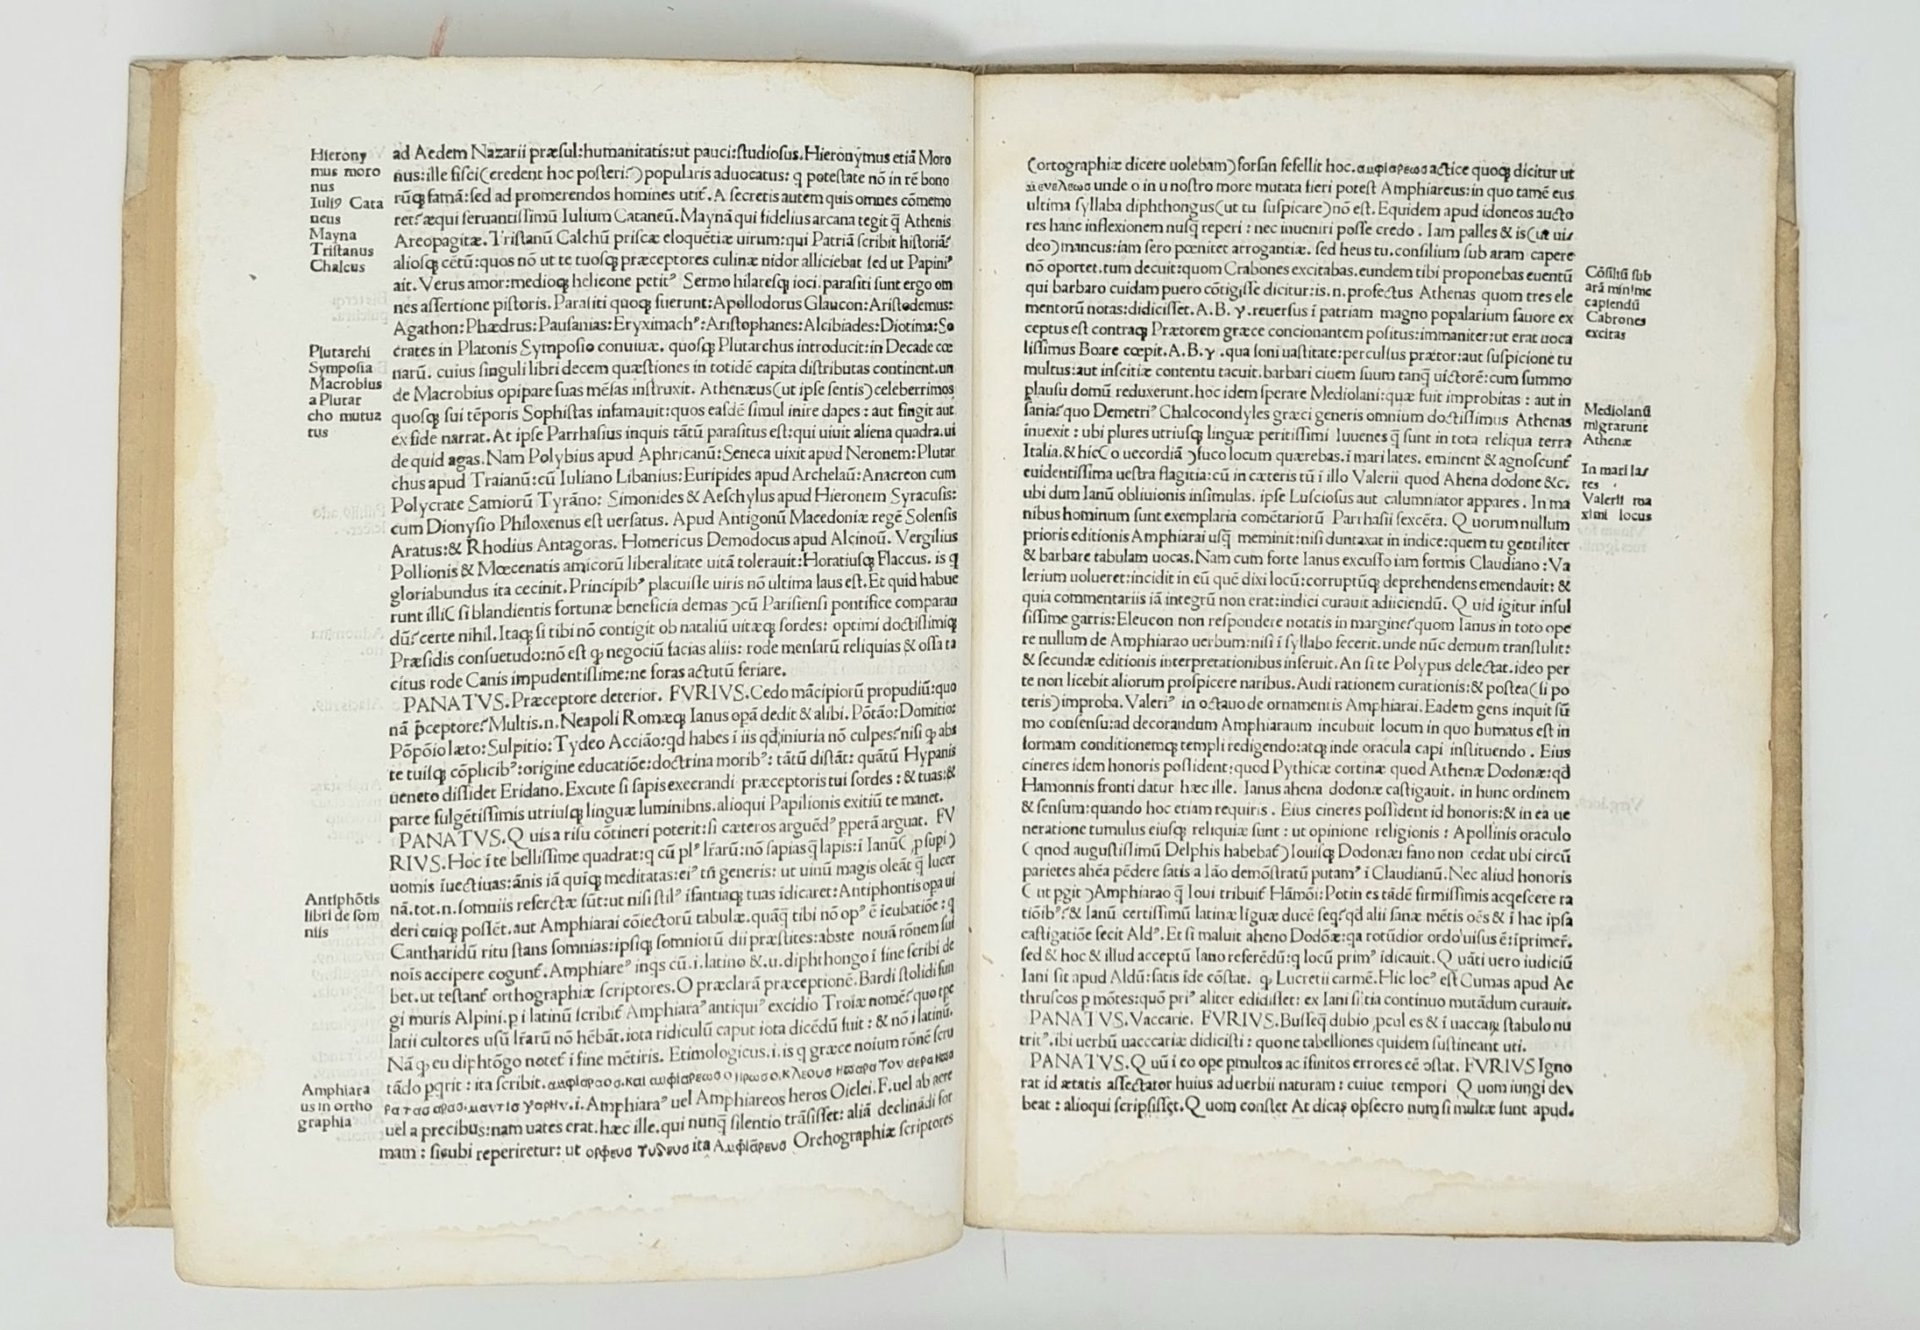 Hierony
mus moro
nus
Iuliꝰ Cata
neus
Mayna
Tristanus
Chalcus
ad Aedem Nazarii præsul:humanitatis:ut pauci:studiosus.Hieronymus etiā Moro
nus:ille fisci(eredent hoc posteri?)popularis aduocatus: q potestate nō in rē bono
rūꝗ famā:sed ad promerendos homines utit̄. A secretis autem quis omnes cōmemo
ret?æqui seruantissimū Iulium Cataneū. Maynā qui fidelius arcana tegit q̄ Athenis
Areopagitæ. Tristanū Calchū priscæ eloquētiæ uirum:qui Patriā scribit historiā?
aliosꝗ cētū:quos nō ut te tuosꝗ præceptores culinæ nidor alliciebat sed ut Papiniꝰ
ait. Verus amor:medioꝗ helicone petitꝰ Sermo hilaresꝗ ioci.parasiti sunt ergo om
nes assertione pistoris. Parasiti quoꝗ fuerunt:Apollodorus Glaucon:Aristodemus:
Agathon:Phædrus:Pausanias:Eryximachꝰ:Aristophanes:Alcibiades:Diotima:So
Plutarchi
Symposia
Macrobius
a Plutar
cho mutua
tus
crates in Platonis Symposio conuiuæ. quosꝗ Plutarchus introducit:in Decade cœ
narū. cuius singuli libri decem quæstiones in totidē capita distributas continent.un
de Macrobius opipare suas mēsas instruxit. Athenæus(ut ipse sentis)celeberrimos
quosꝗ sui tēporis Sophistas infamauit:quos easdē simul inire dapes: aut fingit aut
ex fide narrat. At ipse Parrhasius inquis tātū parasitus est:qui uiuit aliena quadra.ui
de quid agas. Nam Polybius apud Aphricanū:Seneca uixit apud Neronem:Plutar
chus apud Traianū:cū Iuliano Libanius:Euripides apud Archelaū:Anacreon cum
Polycrate Samiorū Tyrāno: Simonides & Aeschylus apud Hieronem Syracusis:
cum Dionysio Philoxenus est uersatus. Apud Antigonū Macedoniæ regē Solensis
Aratus:& Rhodius Antagoras. Homericus Demodocus apud Alcinoū. Vergilius
Pollionis & Mœcenatis amicorū liberalitate uitā tolerauit:Horatiusꝗ Flaccus. is q
gloriabundus ita cecinit. Principibꝰ placuisse uiris nō ultima laus est. Et quid habue
runt illi( si blandientis fortunæ beneficia demas )cū Parisiensi pontifice comparan
dū?certe nihil. Itaꝗ si tibi nō contigit ob nataliū uitæꝗ sordes: optimi doctissimiꝗ
Præsidis consuetudo:nō est ꝙ negociū facias aliis: rode mensarū reliquias & ossa ta
citus rode Canis impudentissime:ne foras actutū feriare.
PANATVS. Præceptore deterior. FVRIVS. Cedo mācipiorū propudiū:quo
nā p̄ceptore? Multis.n. Neapoli Romæꝗ Ianus opā dedit & alibi. Pōtāo: Domitio:
Pōpōio læto: Sulpitio: Tydeo Acciāo:qd habes ī iis qd iniuria nō culpes?nisi ꝙ abs
te tuisꝗ cōplicibꝰ:origine educatiōe:doctrina moribꝰ: tātū distāt: quātū Hypanis
ueneto dissidet Eridano. Excute si sapis execrandi præceptoris tui sordes: & tuas:&
parte fulgētissimis utriusꝗ linguæ luminibns. alioqui Papilionis exitiū te manet.
PANATVS. Q uis a risu cōtineri poterit:si cæteros arguēdꝰ pperā arguat. FV
RIVS. Hoc ī te bellissime quadrat:q cū plꝰ lr̄arū:nō sapias q̄ lapis:ī Ianū(
uomis īuectiuas:ānis iā quīꝗ meditatas:eiꝰ tn̄ generis: ut uinū magis oleāt q̄ lucer
Antiphōtis
libri de som
niis
nā. tot. n. somniis refertæ sūt: ut nisi stilꝰ īfantiaꝗ tuas īdicaret: Antiphontis opa ui
deri cuiꝗ possēt. aut Amphiarai cōiectorū tabulæ. quāq̄ tibi nō opꝰ ē īcubatiōe: q
Cantharidū ritu stans somnias: ipsiꝗ somniorū dii præstites: abste nouā rōnem sui
nois accipere cogunt̄. Amphiareꝰ inqs cū.i. latino &.u. diphthongo ī fine scribi de
bet. ut testant̄ orthographiæ scriptores. O præclarā præceptionē. Bardi stolidi fun
gi muris Alpini. p i latinū scribit̄ Amphiaraꝰ antiquiꝰ excidio Troiæ nomē?quo tpe
latii cultores usū lr̄arū nō hēbāt. iota ridiculū caput iota dicēdū fuit: & nō i latinū.
Nā ꝙ eu diphtōgo notet̄ ī fine mētiris. Etimologicus.i. is q græce noium rōnē scru
Amphiara
us in ortho
graphia
tādo pqrit: ita scribit.
i. Amphiaraꝰ uel Amphiareos heros Oiclei. F. uel ab aere
uel a precibus:nam uates erat. hæc ille. qui nunq̄ silentio trāsisset: aliā declināđi for
mam: sicubi reperiretur: ut ορφευσ τυδευσ ita Αμφιάρευσ Orchographiæ scriptores
(ortographiæ dicere uolebam)forsan fefellit hoc. αμφιαρεωσ actice quoꝗ dicitur ut
unde o in u nostro more mutata fieri potest Amphiareus: in quo tamē eus
ultima syllaba diphthongus(ut tu suspicare)nō est. Equidem apud idoneos aucto
res hanc inflexionem nusq̄ reperi: nec inueniri posse credo. Iam palles & is(ut ui
deo)mancus:iam sero pœnitet arrogantiæ. sed heus tu. consilium sub aram capere
nō oportet. tum decuit:quom Crabones excitabas. eundem tibi proponebas euentū
Cōsiliū sub
arā minime
capiendū
Cabrones
excitas
qui barbaro cuidam puero cōtigisse dicitur:is.n. profectus Athenas quom tres ele
mentorū notas:didicisset. A. B. γ. reuersus ī patriam magno popalarium fauore ex
ceptus est contraꝗ Prætorem græce concionantem positus: immaniter: ut erat uoca
lissimus Boare cœpit. A. B. γ. qua soni uastitate: perculsus prætor: aut suspicione tu
multus: aut inscitiæ contentu tacuit. barbari ciuem suum tanq̄ uictorē: cum summo
plausu domū reduxerunt. hoc idem sperare Mediolani: quæ fuit improbitas: aut in
Mediolanū
migrarunt
Athenæ
sania? quo Demetriꝰ Chalcocondyles græci generis omnium doctissimus Athenas
inuexit: ubi plures utriusꝗ linguæ peritissimi Iuuenes q̄ sunt in tota reliqua terra
Italia. & hic( o uecordiā )fuco locum quærebas. i mari lates. eminent & agnoscunt̄
In mari la
tes
Valerii ma
ximi locus
euidentissima uestra flagitia: cū in cæteris tū ī illo Valerii quod Ahena dodone &c.
ubi dum Ianū obliuionis insimulas. ipse Lusciosus aut calumniator appares. In ma
nibus hominum sunt exemplaria comētariorū Parrhasii sexcēta. Q uorum nullum
prioris editionis Amphiarai usꝗ meminit: nisi duntaxat in indice: quem tu gentiliter
& barbare tabulam uocas. Nam cum forte Ianus excusso iam formis Claudiano: Va
lerium uolueret: incidit in eū quē dixi locū: corruptūꝗ deprehendens emendauit: &
quia commentariis iā integrū non erat: indici curauit adiiciendū. Q uid igitur insul
sissime garris: Eleucon non respondere notatis in margine? quom Ianus in toto ope
re nullum de Amphiarao uerbum: nisi ī syllabo fecerit. unde nūc demum transtulit:
& secundæ editionis interpretationibus inseruit. An si te Polypus delectat. ideo per
te non licebit aliorum prospicere naribus. Audi rationem curationis: & postea(si po
teris)improba. Valeriꝰ in octauo de ornamentis Amphiarai. Eadem gens inquit sū
mo consensu: ad decorandum Amphiaraum incubuit locum in quo humatus est in
formam conditionemꝗ templi redigendo: atꝗ inde oracula capi instituendo. Eius
cineres idem honoris possident: quod Pythicæ cortinæ quod Athenæ Dodonæ: qd
Hamonnis fronti datur hæc ille. Ianus ahena dodonæ castigauit. in hunc ordinem
& sensum: quando hoc etiam requiris. Eius cineres possident id honoris: & in ea ue
neratione tumulus eiusꝗ reliquiæ sunt: ut opinione religionis: Apollinis oraculo
(qnod augustissimū Delphis habebat̄)Iouisꝗ Dodonæi fano non cedat ubi circū
parietes ahēa pēdere satis a Iāo demōstratū putamꝰ ī Claudianū. Nec aliud honoris
( ut pgit )Amphiarao q̄ Ioui tribuit̄ Hāmōi: Potin es tādē firmissimis acqescere ra
tiōibꝰ? & Ianū certissimū latinæ līguæ ducē seq? qd alii sanæ mētis oēs & ī hac ipsa
castigatiōe fecit Aldꝰ. Et si maluit aheno Dodōæ: qa rotūdior ordo uisus ē: īprimer̄.
sed & hoc & illud acceptū Iano referēdū: q locū primꝰ īdicauit. Q uāti uero iudiciū
Iani sit apud Aldū: satis ide cōstat. ꝙ Lucretii carmē. Hic locꝰ est Cumas apud Ae
thruscos p mōtes: quō priꝰ aliter edidisset: ex Iani sītia continuo mutādum curauit.
PANATVS. Vaccarie. FVRIVS. Bussequ dubio ꝓcul es & ī uaccaꝝ stabulo nu
tritꝰ. ibi uerbū uacccariæ didicisti: quo ne tabelliones quidem sustineant uti.
PANATVS. Q uū ī eo ope pmultos ac īfinitos errores eē ɔstat. FVRIVS Igno
rat id ætatis affectator huius aduerbii naturam: cuiue tempori Q uom iungi de
beat: alioqui scripsisset. Q uom constet At dicas obsecro num si multæ sunt apud.